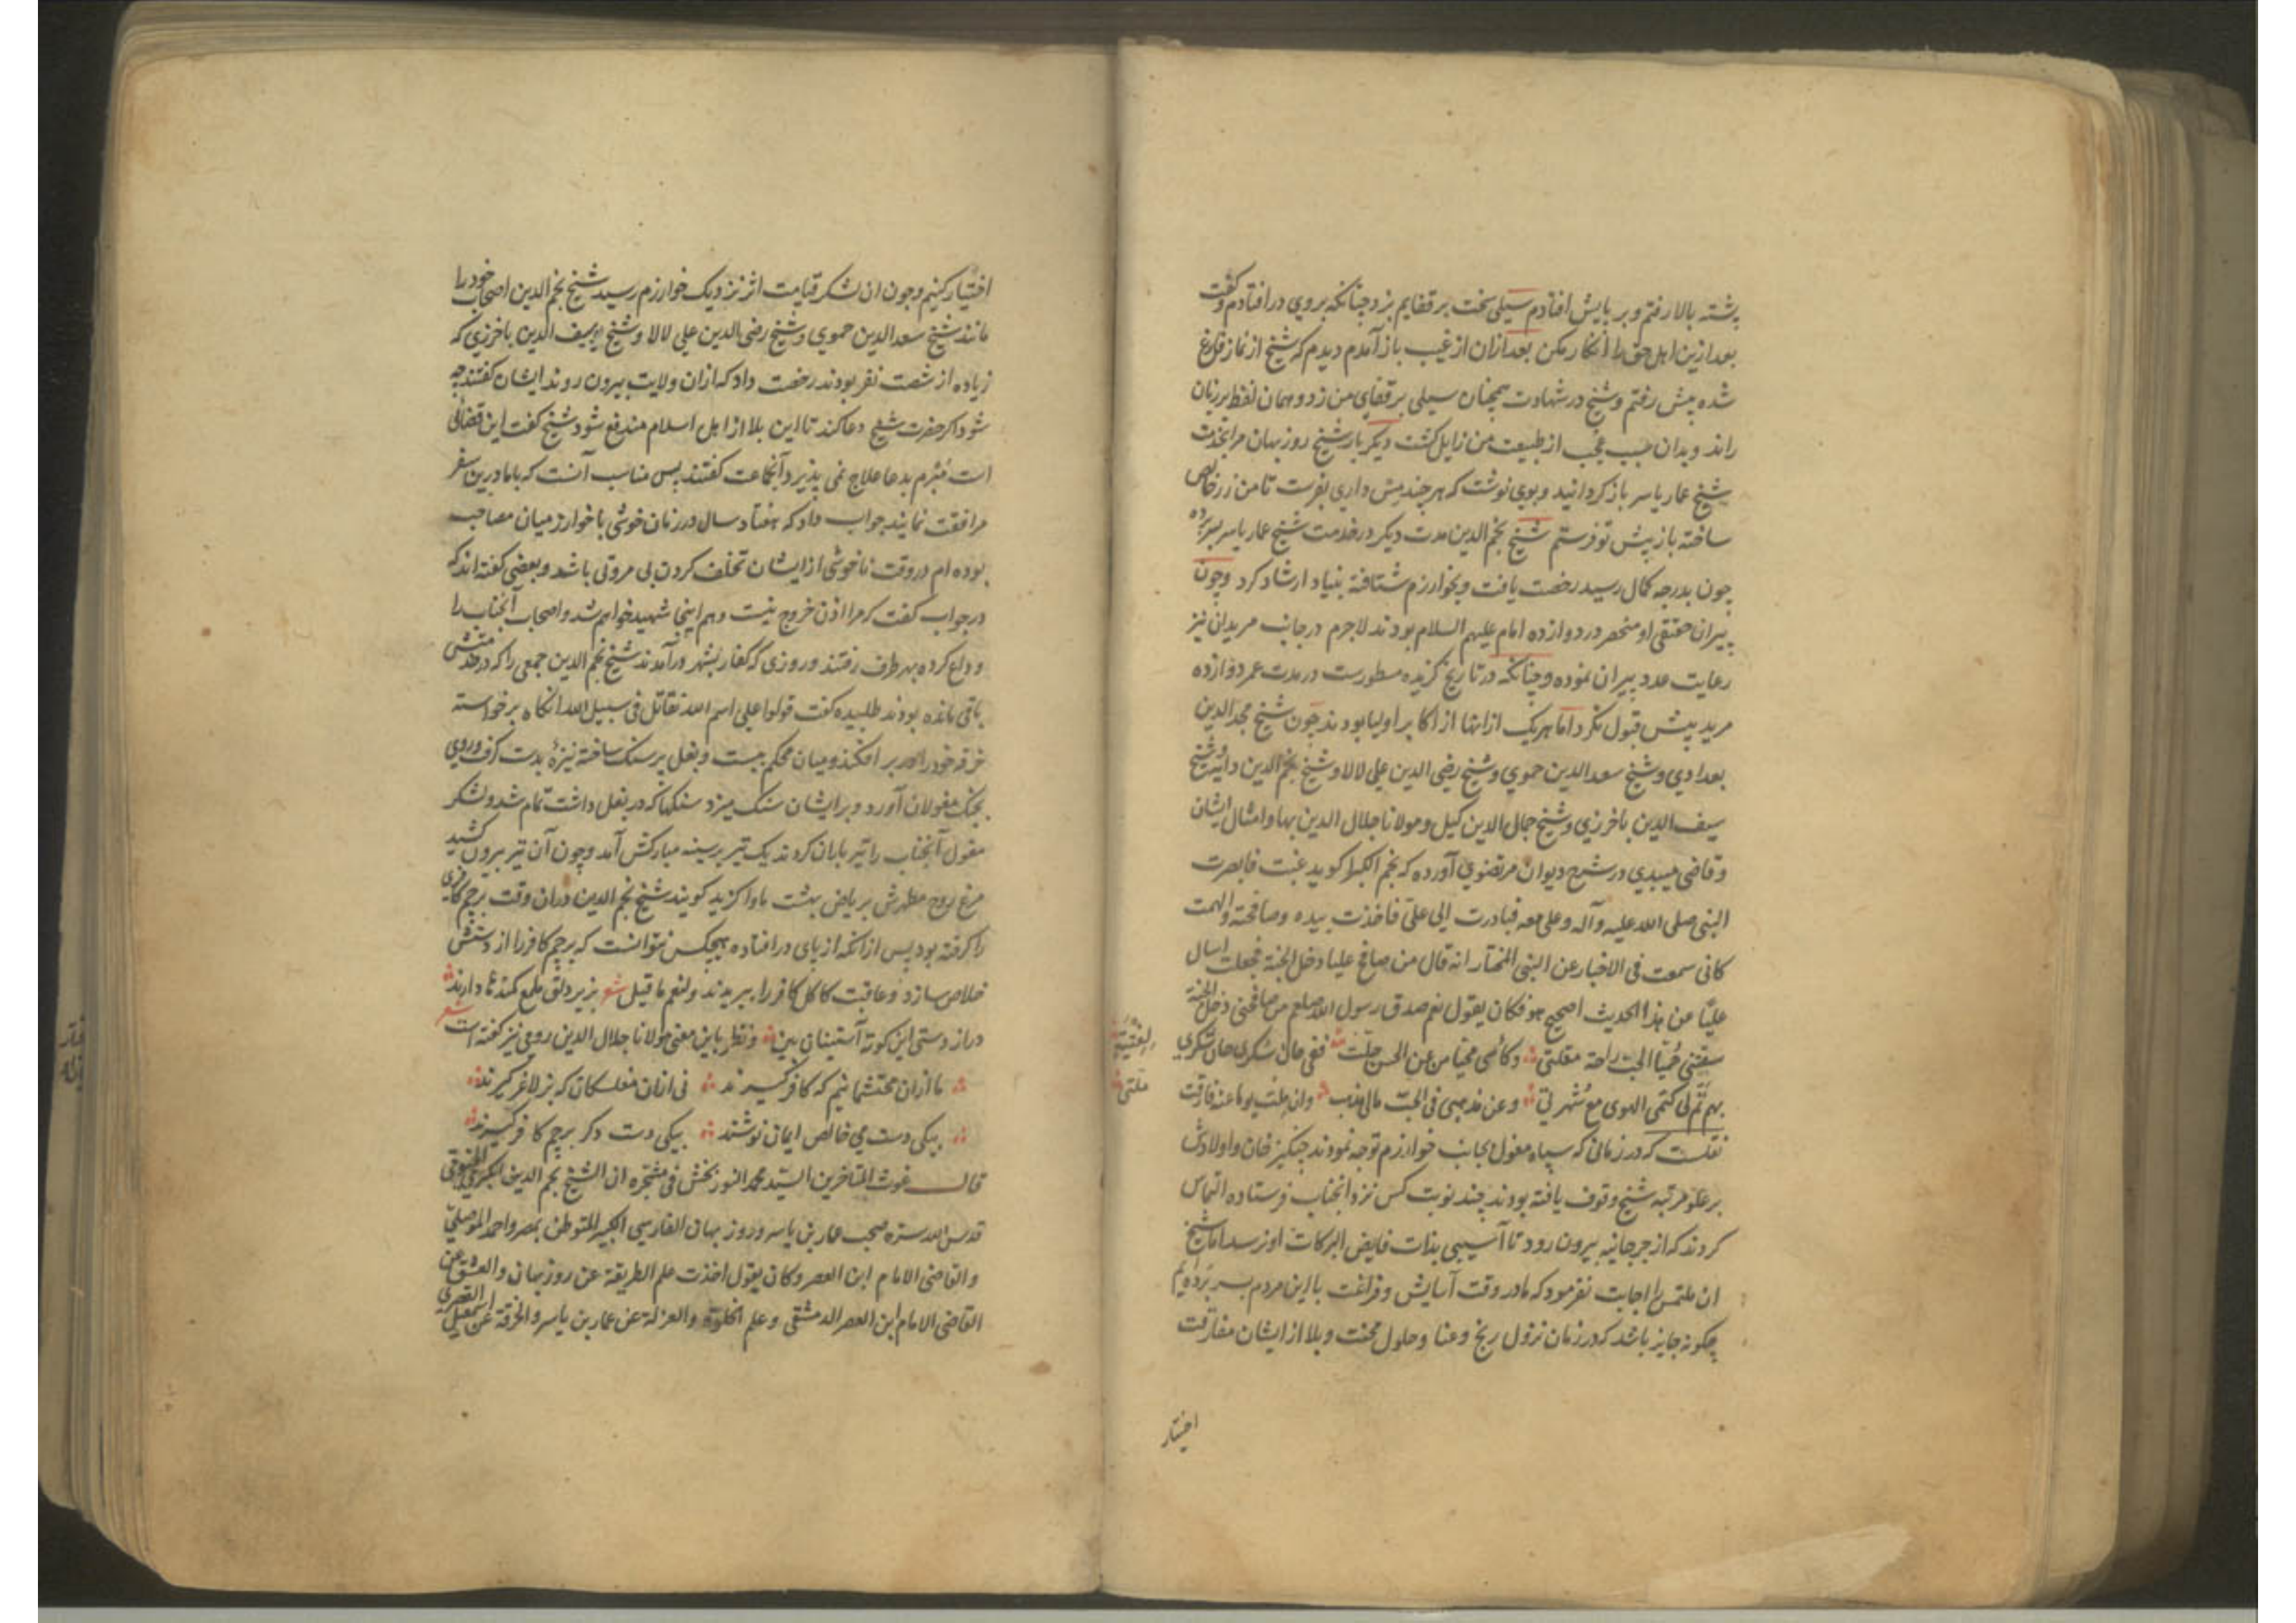 پشته بالا رفتم و بر پایش افتادم سیلی سخت بر قفایم بزد چنانکه بروی در افتادم و گفت
بعد ازین اهل حق را انکار مکن بعد ازان از غیب باز آمدم دیدم که شیخ از نماز فارغ
شده پیش رفتم و شیخ در شهادت همچنان سیلی بر قفای من زد و همان لفظ بر زبان
راند و بدان سبب عجب از طبیعت من زایل کشت دیگر بار شیخ روزبهان مرا بخدمت
شیخ عمار یاسر باز گردانید و بوی نوشت که هر چند مس داری بفرست تا من زر خالص
ساخته باز پیش تو فرستم شیخ نجم الدین مدت دیگر در خدمت شیخ عمار یاسر بسر برده
چون بدرجه کمال رسید رخصت یافت و بخوارزم شتافته بنیاد ارشاد کرد و چون
پیران حقیقی او منحصر در دوازده امام علیهم السلام بودند لاجرم در جانب مریدان نیز
رعایت عدد پیران نموده و چنانکه در تاریخ گزیده مسطورست در مدت عمر دوازده
مرید بیش قبول نکرد اما هر یک از انها از اکابر اولیا بودند چون شیخ مجد الدین
بغدادی و شیخ سعد الدین حموی و شیخ رضی الدین علی لالا و شیخ نجم الدین دایه و شیخ
سیف الدین باخرزی و شیخ جمال الدین کیل و مولانا جلال الدین بها و امثال ایشان
و قاضی میبدی در شرح دیوان مرتضوی آورده که نجم الکبرا گوید غبت فابصرت
النبی صلی الله علیه وآله وعلی معه فبادرت الی علی فاخذت بیده وصافحته والهمت
کانی سمعت فی الاخبار عن النبی المختار انه قال من صافح علیا دخل الجنة فجعلت اسال
علیا عن هذا الحدیث اصحیح هو فکان یقول نعم صدق رسول الله صلعم من صافحنی دخل الجنة
سقتنی حمیا الحب راحة مقلتی وکاسی محیا من عن الحسن جلت ففی حان سکری حان شکری
لفتیة
بهم تم لی کتمی الهوی مع شهرتی وعن مذهبی فی الحب مالی مذهب وان ملت یوما عنه فارقت
ملتی
نقلست که در زمانی که سپاه مغول بجانب خوارزم توجه نمودند چنگیز خان و اولادش
بر علو مرتبه شیخ وقوف یافته بودند چند نوبت کس نزد آنجناب فرستاده التماس
کردند که از جرجانیه بیرون رود تا آسیبی بذات فایض البرکات او نرسد اما شیخ
ان ملتمس را اجابت نفرمود که ما در وقت آسایش و فراغت با این مردم بسر برده‌ایم
چگونه جایز باشد که در زمان نزول رنج و عنا و حلول محنت و بلا از ایشان مفارقت
اختیار
اختیار کنیم و چون ان لشکر قیامت اثر نزدیک خوارزم رسید شیخ نجم الدین اصحاب خود را
مانند شیخ سعد الدین حموی و شیخ رضی الدین علی لالا و شیخ سیف الدین باخرزی که
زیاده از شصت نفر بودند رخصت داد که ازان ولایت بیرون روند ایشان گفتند چه
شود اگر حضرت شیخ دعا کند تا این بلا از اهل اسلام مندفع شود شیخ گفت این قضائی
است مبرم بدعا علاج نمی پذیرد آنجماعت گفتند پس مناسب آنست که با ما درین سفر
مرافقت نمایند جواب داد که هفتاد سال در زمان خوشی با خوارزمیان مصاحب
بوده ام در وقت ناخوشی از ایشان تخلف کردن بی مروتی باشد و بعضی گفته اند که
در جواب گفت که مرا اذن خروج نیست و هم اینجا شهید خواهم شد و اصحاب آنجناب را
وداع کرده بهر طرف رفتند و روزی که کفار بشهر درآمدند شیخ نجم الدین جمعی را که در خدمتش
باقی مانده بودند طلبیده گفت قولوا علی اسم الله نقاتل فی سبیل الله انگاه برخواسته
خرقه خود را در بر افکند و میان محکم ببست و بغل پر سنک ساخته نیزهٔ بدست گرفت و روی
بجنک مغولان آورد و بر ایشان سنک میزد سنکها که در بغل داشت تمام شد و لشکر
مغول آنجناب را تیر باران کردند یک تیر بر سینه مبارکش آمد و چون آن تیر بیرون کشید
مرغ روح مطهرش بریاض بهشت ماوا گزید گویند شیخ نجم الدین دران وقت پرچم کافری
را گرفته بود پس از انکه از پای در افتاده هیچکس نتوانست که پرچم کافر را از دستش
خلاص سازد و عاقبت کاکل کافر را ببریدند ولنعم ما قیل شعر بزیر دلق ملمع کمندها دارند
دراز دستی این کوته آستینان بین و نظر باین معنی مولانا جلال الدین رومی نیز گفته است شعر
ما ازان محتشمانیم که کافر گیرند نی ازان مفلسکان که بز لاغر گیرند
بیکی دست می خالص ایمان نوشند بیکی دست دگر پرچم کافر گیرند
قال غوث المتاخرین السید محمد النور بخش فی مشجره ان الشیخ نجم الدین الکبری الخیوقی
قدس الله سره صحب عمار بن یاسر و روزبهان الفارسی الکبیر المتوطن بمصر واحمد الموصلی
والقاضی الامام ابن العصر وکان یقول اخذت علم الطریقة عن روزبهان والعشق عن
القاضی الامام ابن العصر الدمشقی وعلم الخلوة والعزلة عن عمار بن یاسر والخرقة عن اسمعیل القصری